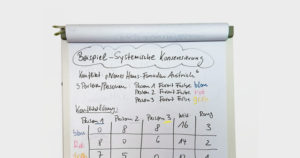 Beispiel - Systemische Konsensierung
Konflikt „Neues Haus - Fassaden Anstrich"
3 Person/Personen Person 1 Favorit Farbe blau
Person 2 Favorit Farbe rot
Person 3 Favorit Farbe gelb
Person 1 Person 2 Person 3 Wid. Rang
blau 0 8 8 16 3
Rot 8 0 6 14 2
7 5 0 12 1